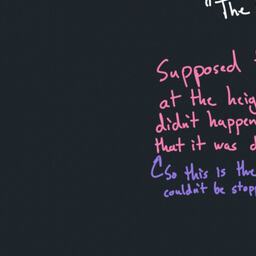 "The
Supposed
at the heig
didn't happen
that it was d
So this is the
couldn't be stopp